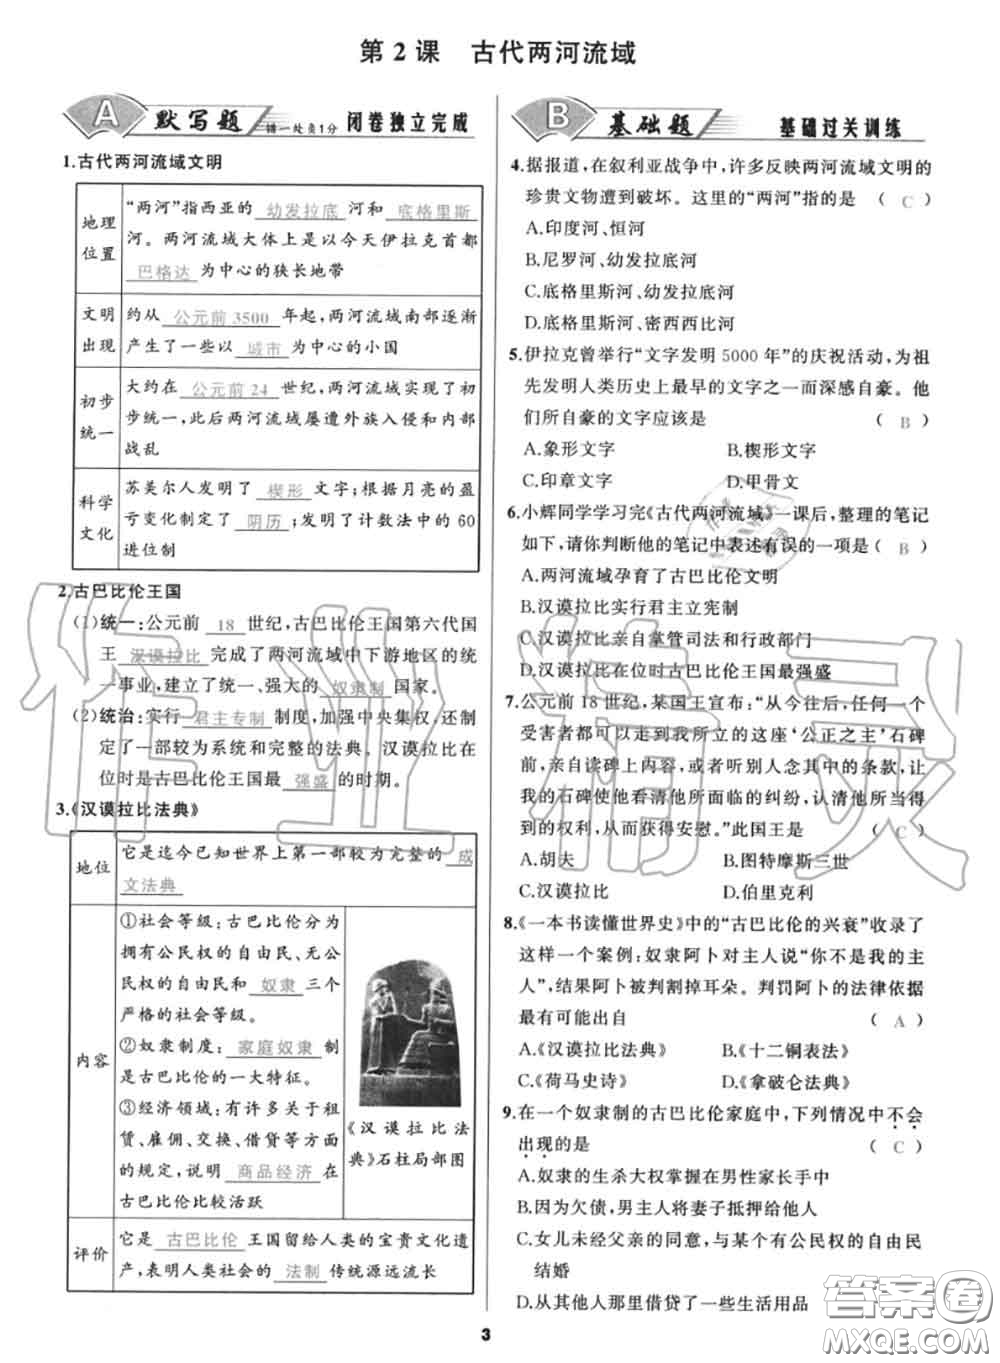 第2课 古代两河流域
A 默写题 错一处负1分 闭卷独立完成
1.古代两河流域文明
地理位置
“两河”指西亚的 幼发拉底 河和 底格里斯
河。两河流域大体上是以今天伊拉克首都
巴格达 为中心的狭长地带
文明出现
约从 公元前3500 年起,两河流域南部逐渐
产生了一些以 城市 为中心的小国
初步统一
大约在 公元前24 世纪,两河流域实现了初
步统一,此后两河流域屡遭外族入侵和内部
战乱
科学文化
苏美尔人发明了 楔形 文字;根据月亮的盈
亏变化制定了 阴历 ;发明了计数法中的60
进位制
2.古巴比伦王国
(1)统一:公元前 18 世纪,古巴比伦王国第六代国
王 汉谟拉比 完成了两河流域中下游地区的统
一事业,建立了统一、强大的 奴隶制 国家。
(2)统治:实行 君主专制 制度,加强中央集权,还制
定了一部较为系统和完整的法典。汉谟拉比在
位时是古巴比伦王国最 强盛 的时期。
3.《汉谟拉比法典》
地位
它是迄今已知世界上第一部较为完整的 成
文法典
内容
①社会等级:古巴比伦分为
拥有公民权的自由民、无公
民权的自由民和 奴隶 三个
严格的社会等级。
②奴隶制度: 家庭奴隶 制
是古巴比伦的一大特征。
③经济领域:有许多关于租
赁、雇佣、交换、借贷等方面
的规定,说明 商品经济 在
古巴比伦比较活跃
《汉谟拉比法
典》石柱局部图
评价
它是 古巴比伦 王国留给人类的宝贵文化遗
产,表明人类社会的 法制 传统源远流长
B 基础题 基础过关训练
4.据报道,在叙利亚战争中,许多反映两河流域文明的
珍贵文物遭到破坏。这里的“两河”指的是 ( C )
A.印度河、恒河
B.尼罗河、幼发拉底河
C.底格里斯河、幼发拉底河
D.底格里斯河、密西西比河
5.伊拉克曾举行“文字发明5000年”的庆祝活动,为祖
先发明人类历史上最早的文字之一而深感自豪。他
们所自豪的文字应该是 ( B )
A.象形文字 B.楔形文字
C.印章文字 D.甲骨文
6.小辉同学学习完《古代两河流域》一课后,整理的笔记
如下,请你判断他的笔记中表述有误的一项是( B )
A.两河流域孕育了古巴比伦文明
B.汉谟拉比实行君主立宪制
C.汉谟拉比亲自掌管司法和行政部门
D.汉谟拉比在位时古巴比伦王国最强盛
7.公元前18世纪,某国王宣布:“从今往后,任何一个
受害者都可以走到我所立的这座‘公正之主’石碑
前,亲自读碑上内容,或者听别人念其中的条款,让
我的石碑使他看清他所面临的纠纷,认清他所当得
到的权利,从而获得安慰。”此国王是 ( C )
A.胡夫 B.图特摩斯三世
C.汉谟拉比 D.伯里克利
8.《一本书读懂世界史》中的“古巴比伦的兴衰”收录了
这样一个案例:奴隶阿卜对主人说“你不是我的主
人”,结果阿卜被判割掉耳朵。判罚阿卜的法律依据
最有可能出自 ( A )
A.《汉谟拉比法典》 B.《十二铜表法》
C.《荷马史诗》 D.《拿破仑法典》
9.在一个奴隶制的古巴比伦家庭中,下列情况中不会
出现的是 ( C )
A.奴隶的生杀大权掌握在男性家长手中
B.因为欠债,男主人将妻子抵押给他人
C.女儿未经父亲的同意,与某个有公民权的自由民
结婚
D.从其他人那里借贷了一些生活用品
3
作业精灵
答案圈
MXQE.COM